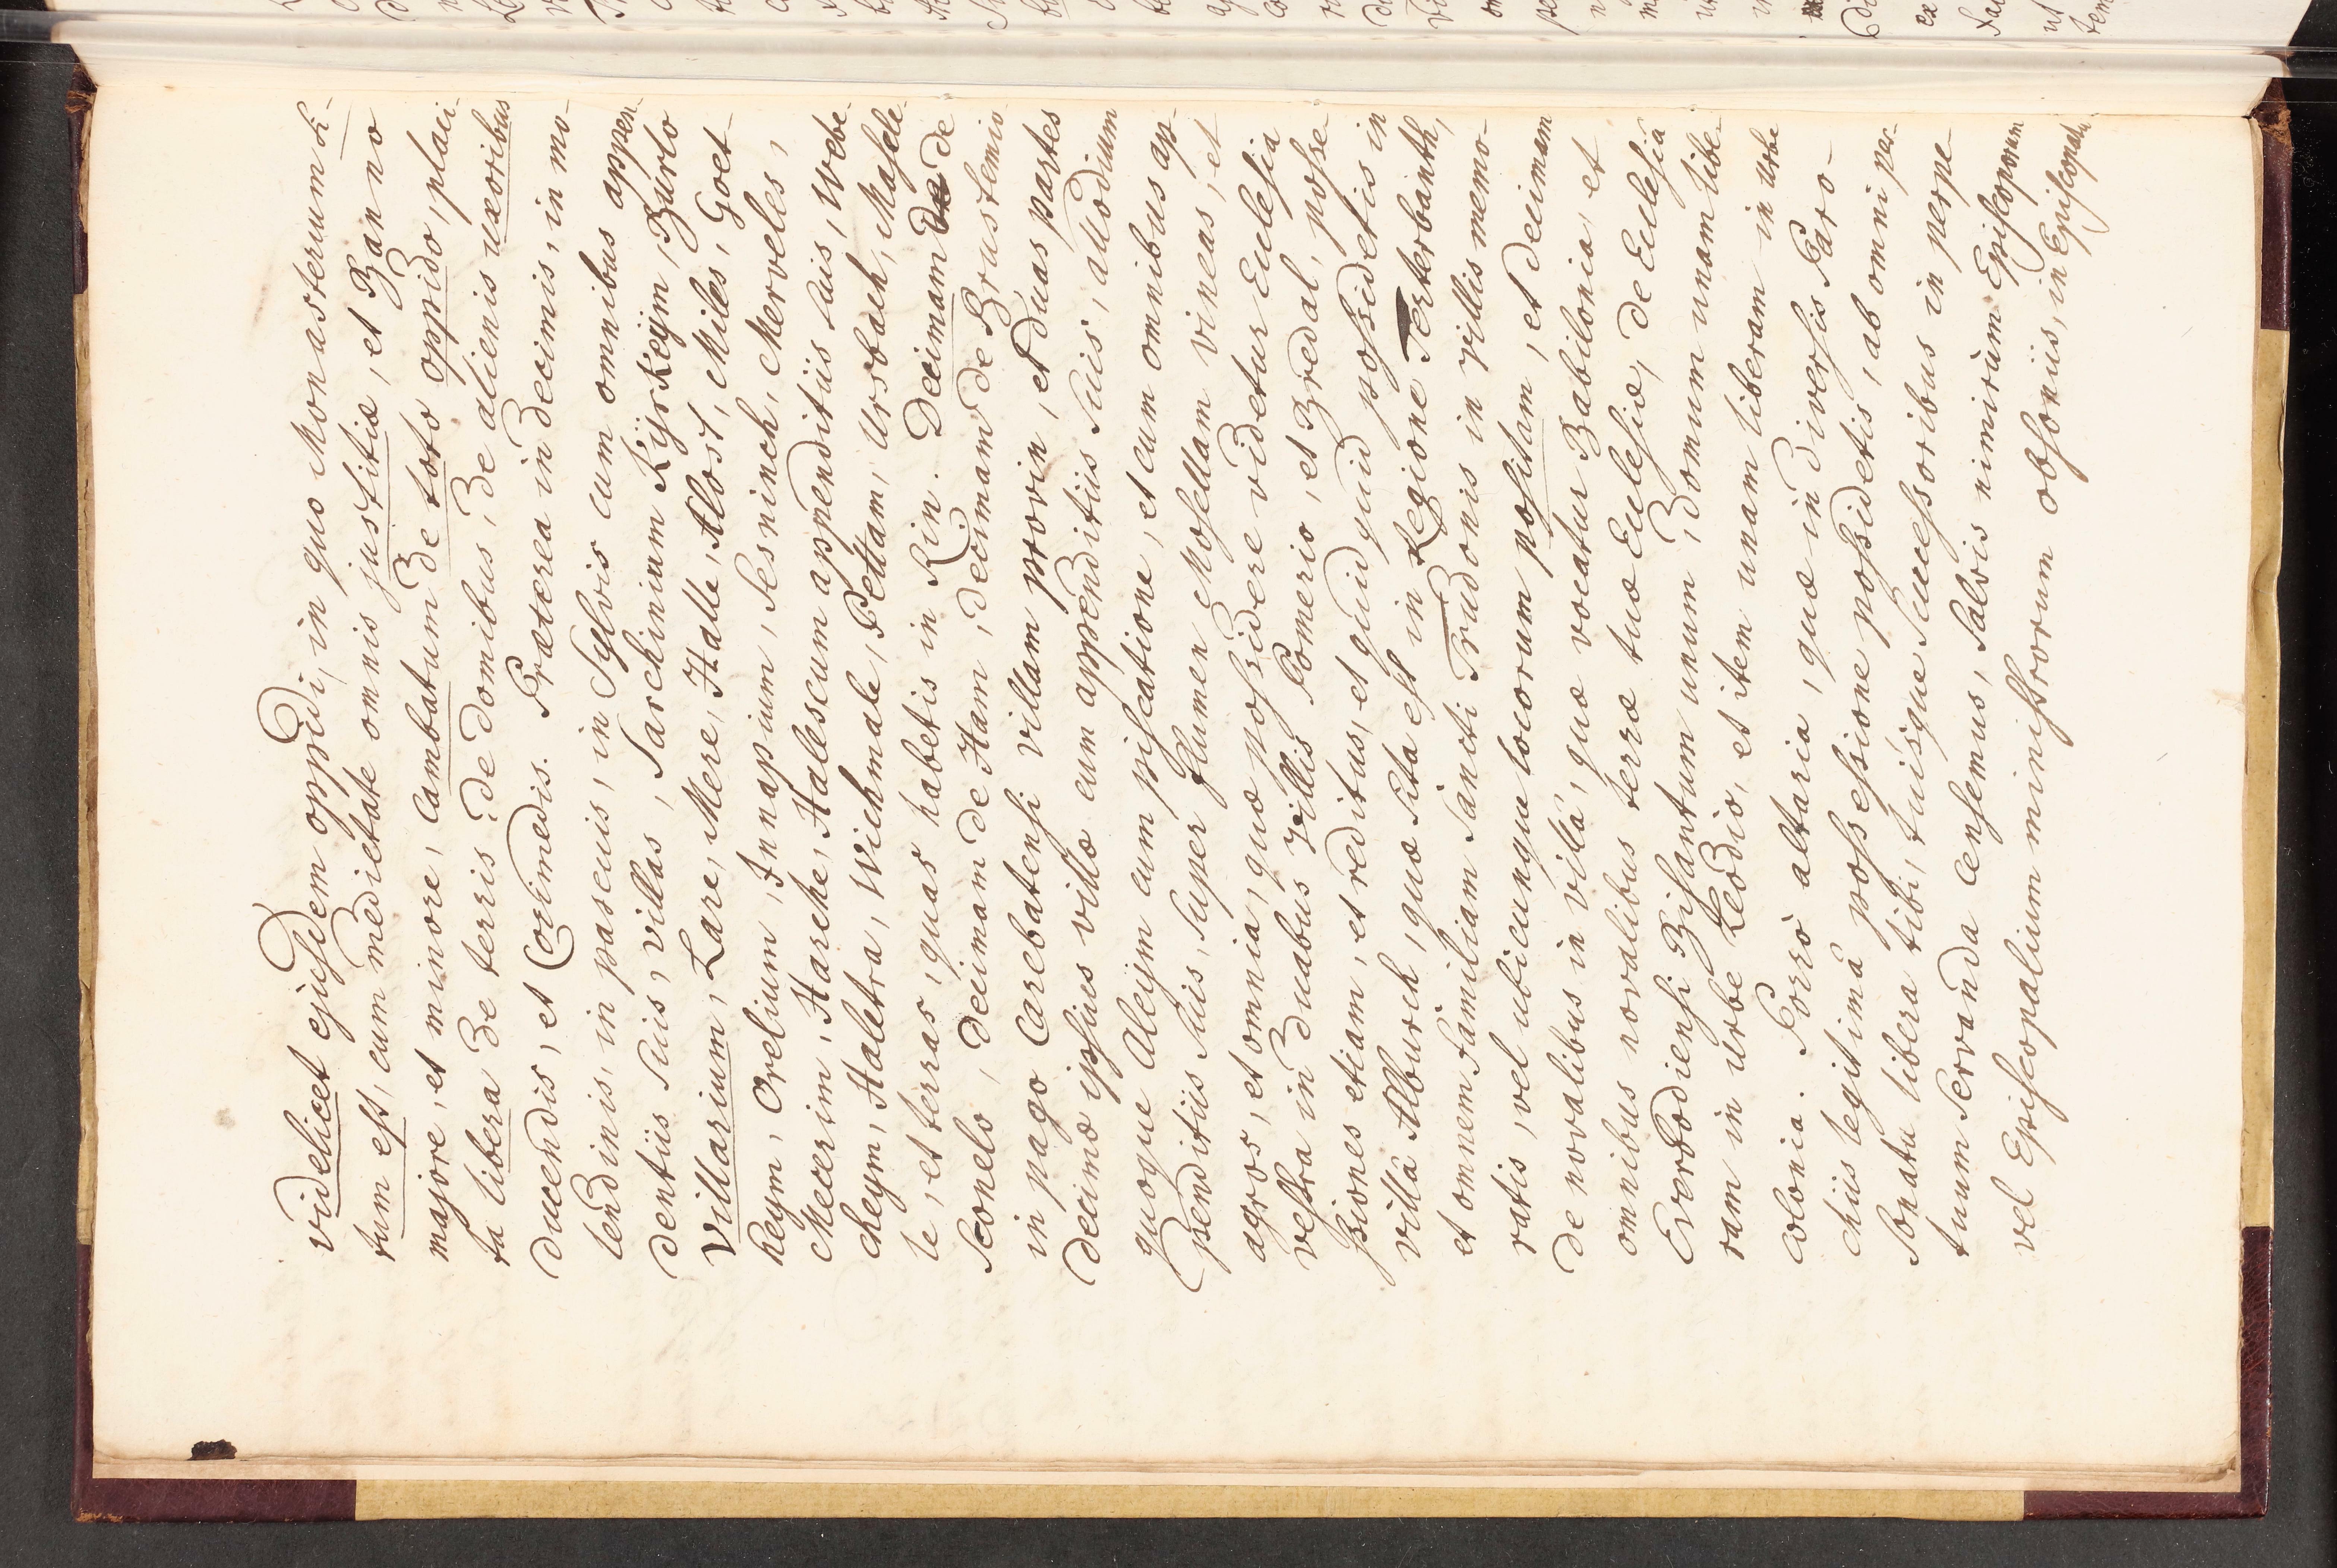 videlicet ejusdem oppidi, in quo Monasterium si-
tum est, cum medietate omnis justitiæ, et Banno
majore, et minore, Cambatum de toto oppido, placi-
ta libera de terris, de domibus, de alienis uxoribus
ducendis, et Corimedis. Præterea in decimis, in mo-
lendinis, in pascuis, in Sylvis cum omnibus appen-
dentiis Suis, villas, Sarchinium Kÿrkeÿm, Burlo
Villarium, Lare, Mere, Halle, Alost, Miles, Goet-
heym, Orelium, Innapium, Sesninch, Merveles,
Mecerim, Harche, Halescum appenditiis suis, Webe-
cheym, Haletra, Wichmale, Pettam, Ursbach, Masele-
te, et terras, quas habetis in Rin. Decimam de
Sconelo, decimam de Ham, decimam de Brustemio
in pago Carebatensi villam provin, et duas partes
decimæ ipsius villæ cum appenditiis Suis, allodium
quoque Aleÿm cum piscatione, et cum omnibus ap-
penditiis Suis, Super flumen Mosellam vineas, et
agros, et omnia, quæ possidere videtur Ecclesia
vestra in duabus villis Pomerio, et Bredal, posse-
siones etiam, et reditus, et quid quid possidetis in
villâ Alburch, quæ Sita est in Regione Testerbanth,
et omnem Familiam Sancti Trudonis in villis memo-
ratis, vel ubicunque locorum positam, et decimam
de novalibus in villâ, quæ vocatur Babilonia, et
omnibus novalibus terræ tuæ Ecclesiæ, de Ecclesiâ
Everbodiensi Bisantum unum, domum unam libe-
ram in urbe Leodio, et item unam liberam in urbe
Colonia. Porrò altaria, quæ in diversis Paro-
chiis legitimâ possessione possidetis, ab omni per-
sonatu libera tibi, tuisque Successoribus in perpe-
tuum Servanda censemus, Salvis nimirùm Episcoporum
vel Episcopalium ministrorum obsoniis, in Episcopatu